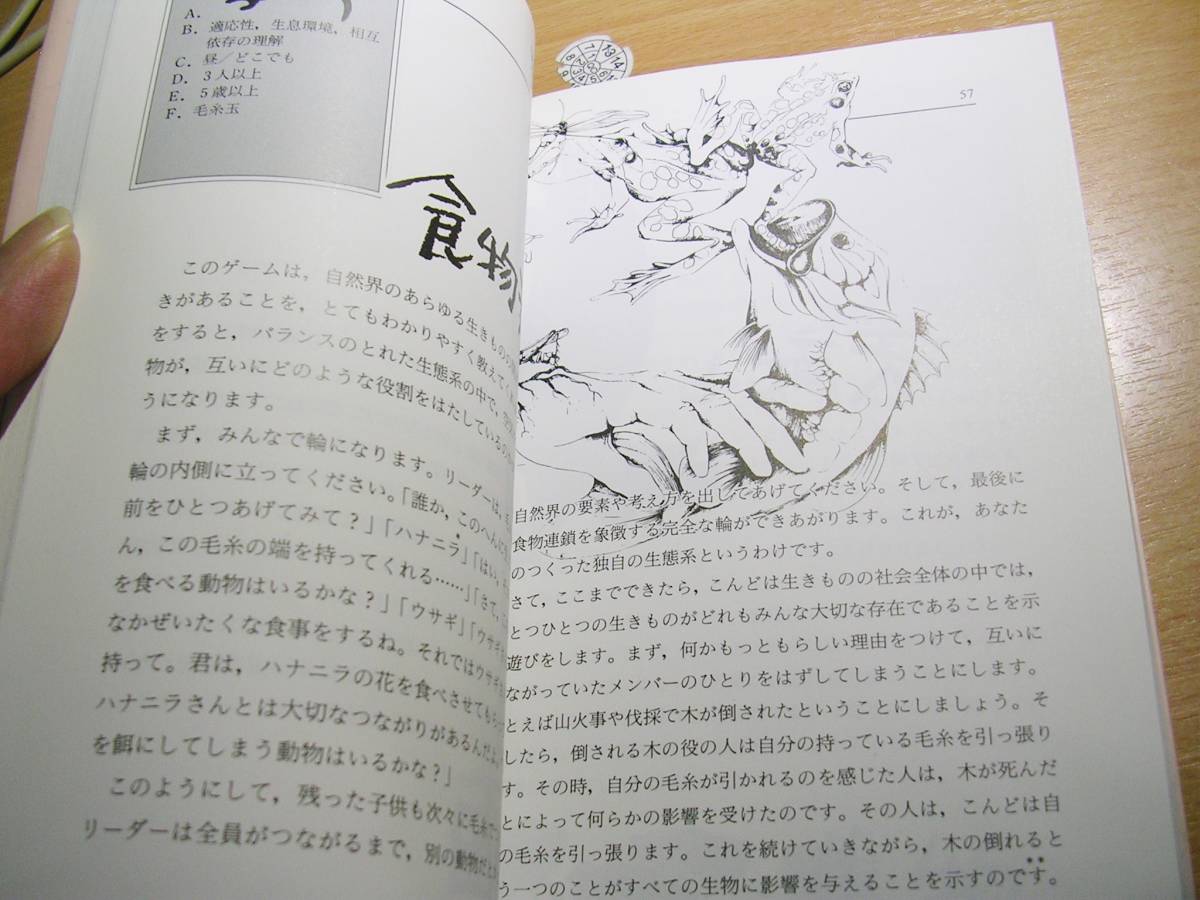 A.
B. 適応性,生息環境,相互
依存の理解
C. 昼/どこでも
D. 3人以上
E. 5歳以上
F. 毛糸玉
食物
このゲームは,自然界のあらゆる生きものの
きがあることを,とてもわかりやすく教えてく
をすると,バランスのとれた生態系の中で,
物が,互いにどのような役割をはたしているの
うになります。
まず,みんなで輪になります。リーダーは,
輪の内側に立ってください。「誰か,このへんに
前をひとつあげてみて?」「ハナニラ」「はい,
ん,この毛糸の端を持ってくれる……」「さて,
を食べる動物はいるかな?」「ウサギ」「ウサギ
なかぜいたくな食事をするね。それではウサギ
持って。君は,ハナニラの花を食べさせてもら
ハナニラさんとは大切なつながりがあるんだよ
を餌にしてしまう動物はいるかな?」
このようにして,残った子供も次々に毛糸で
リーダーは全員がつながるまで,別の動物だと
57
13 14
自然界の要素や考え方を出してあげてください。そして,最後に
食物連鎖を象徴する完全な輪ができあがります。これが,あなた
のつくった独自の生態系というわけです。
さて,ここまでできたら,こんどは生きものの社会全体の中では,
とつひとつの生きものがどれもみんな大切な存在であることを示
遊びをします。まず,何かもっともらしい理由をつけて,互いに
ながっていたメンバーのひとりをはずしてしまうことにします。
とえば山火事や伐採で木が倒されたということにしましょう。そ
したら,倒される木の役の人は自分の持っている毛糸を引っ張り
す。その時,自分の毛糸が引かれるのを感じた人は,木が死んだ
とによって何らかの影響を受けたのです。その人は,こんどは自
の毛糸を引っ張ります。これを続けていきながら,木の倒れると
う一つのことがすべての生物に影響を与えることを示すのです。